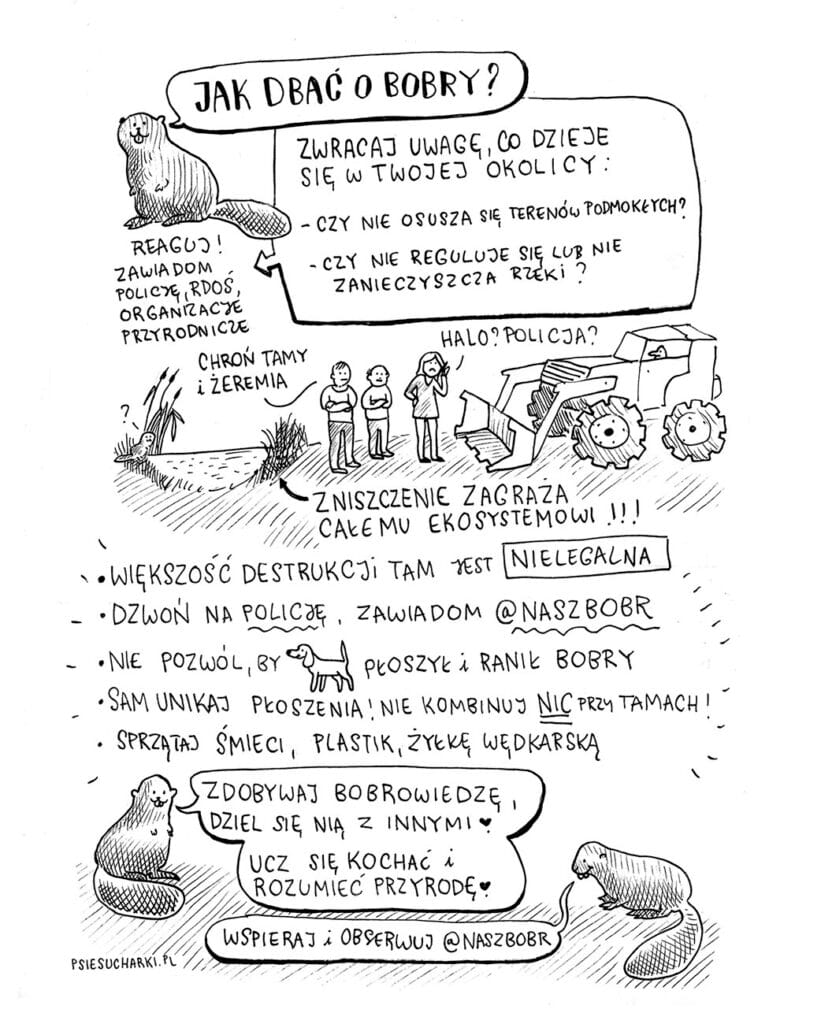 JAK DBAĆ O BOBRY?
ZWRACAJ UWAGĘ, CO DZIEJE
SIĘ W TWOJEJ OKOLICY:
- CZY NIE OSUSZA SIĘ TERENÓW PODMOKŁYCH?
- CZY NIE REGULUJE SIĘ LUB NIE
ZANIECZYSZCZA RZEKI?
REAGUJ!
ZAWIADOM
POLICJĘ, RDOŚ,
ORGANIZACJE
PRZYRODNICZE
CHROŃ TAMY
i ŻEREMIA
HALO? POLICJA?
?
ZNISZCZENIE ZAGRAŻA
CAŁEMU EKOSYSTEMOWI !!!
• WIĘKSZOŚĆ DESTRUKCJI TAM JEST NIELEGALNA
• DZWOŃ NA POLICJĘ, ZAWIADOM @NASZBOBR
• NIE POZWÓL, BY PŁOSZYŁ i RANIŁ BOBRY
• SAM UNIKAJ PŁOSZENIA! NIE KOMBINUJ NIC PRZY TAMACH!
• SPRZĄTAJ ŚMIECI, PLASTIK, ŻYŁKĘ WĘDKARSKĄ
ZDOBYWAJ BOBROWIEDZĘ,
DZIEL SIĘ NIĄ Z INNYMI ♥
UCZ SIĘ KOCHAĆ i
ROZUMIEĆ PRZYRODĘ ♥
WSPIERAJ i OBSERWUJ @NASZBOBR
PSIESUCHARKI.PL